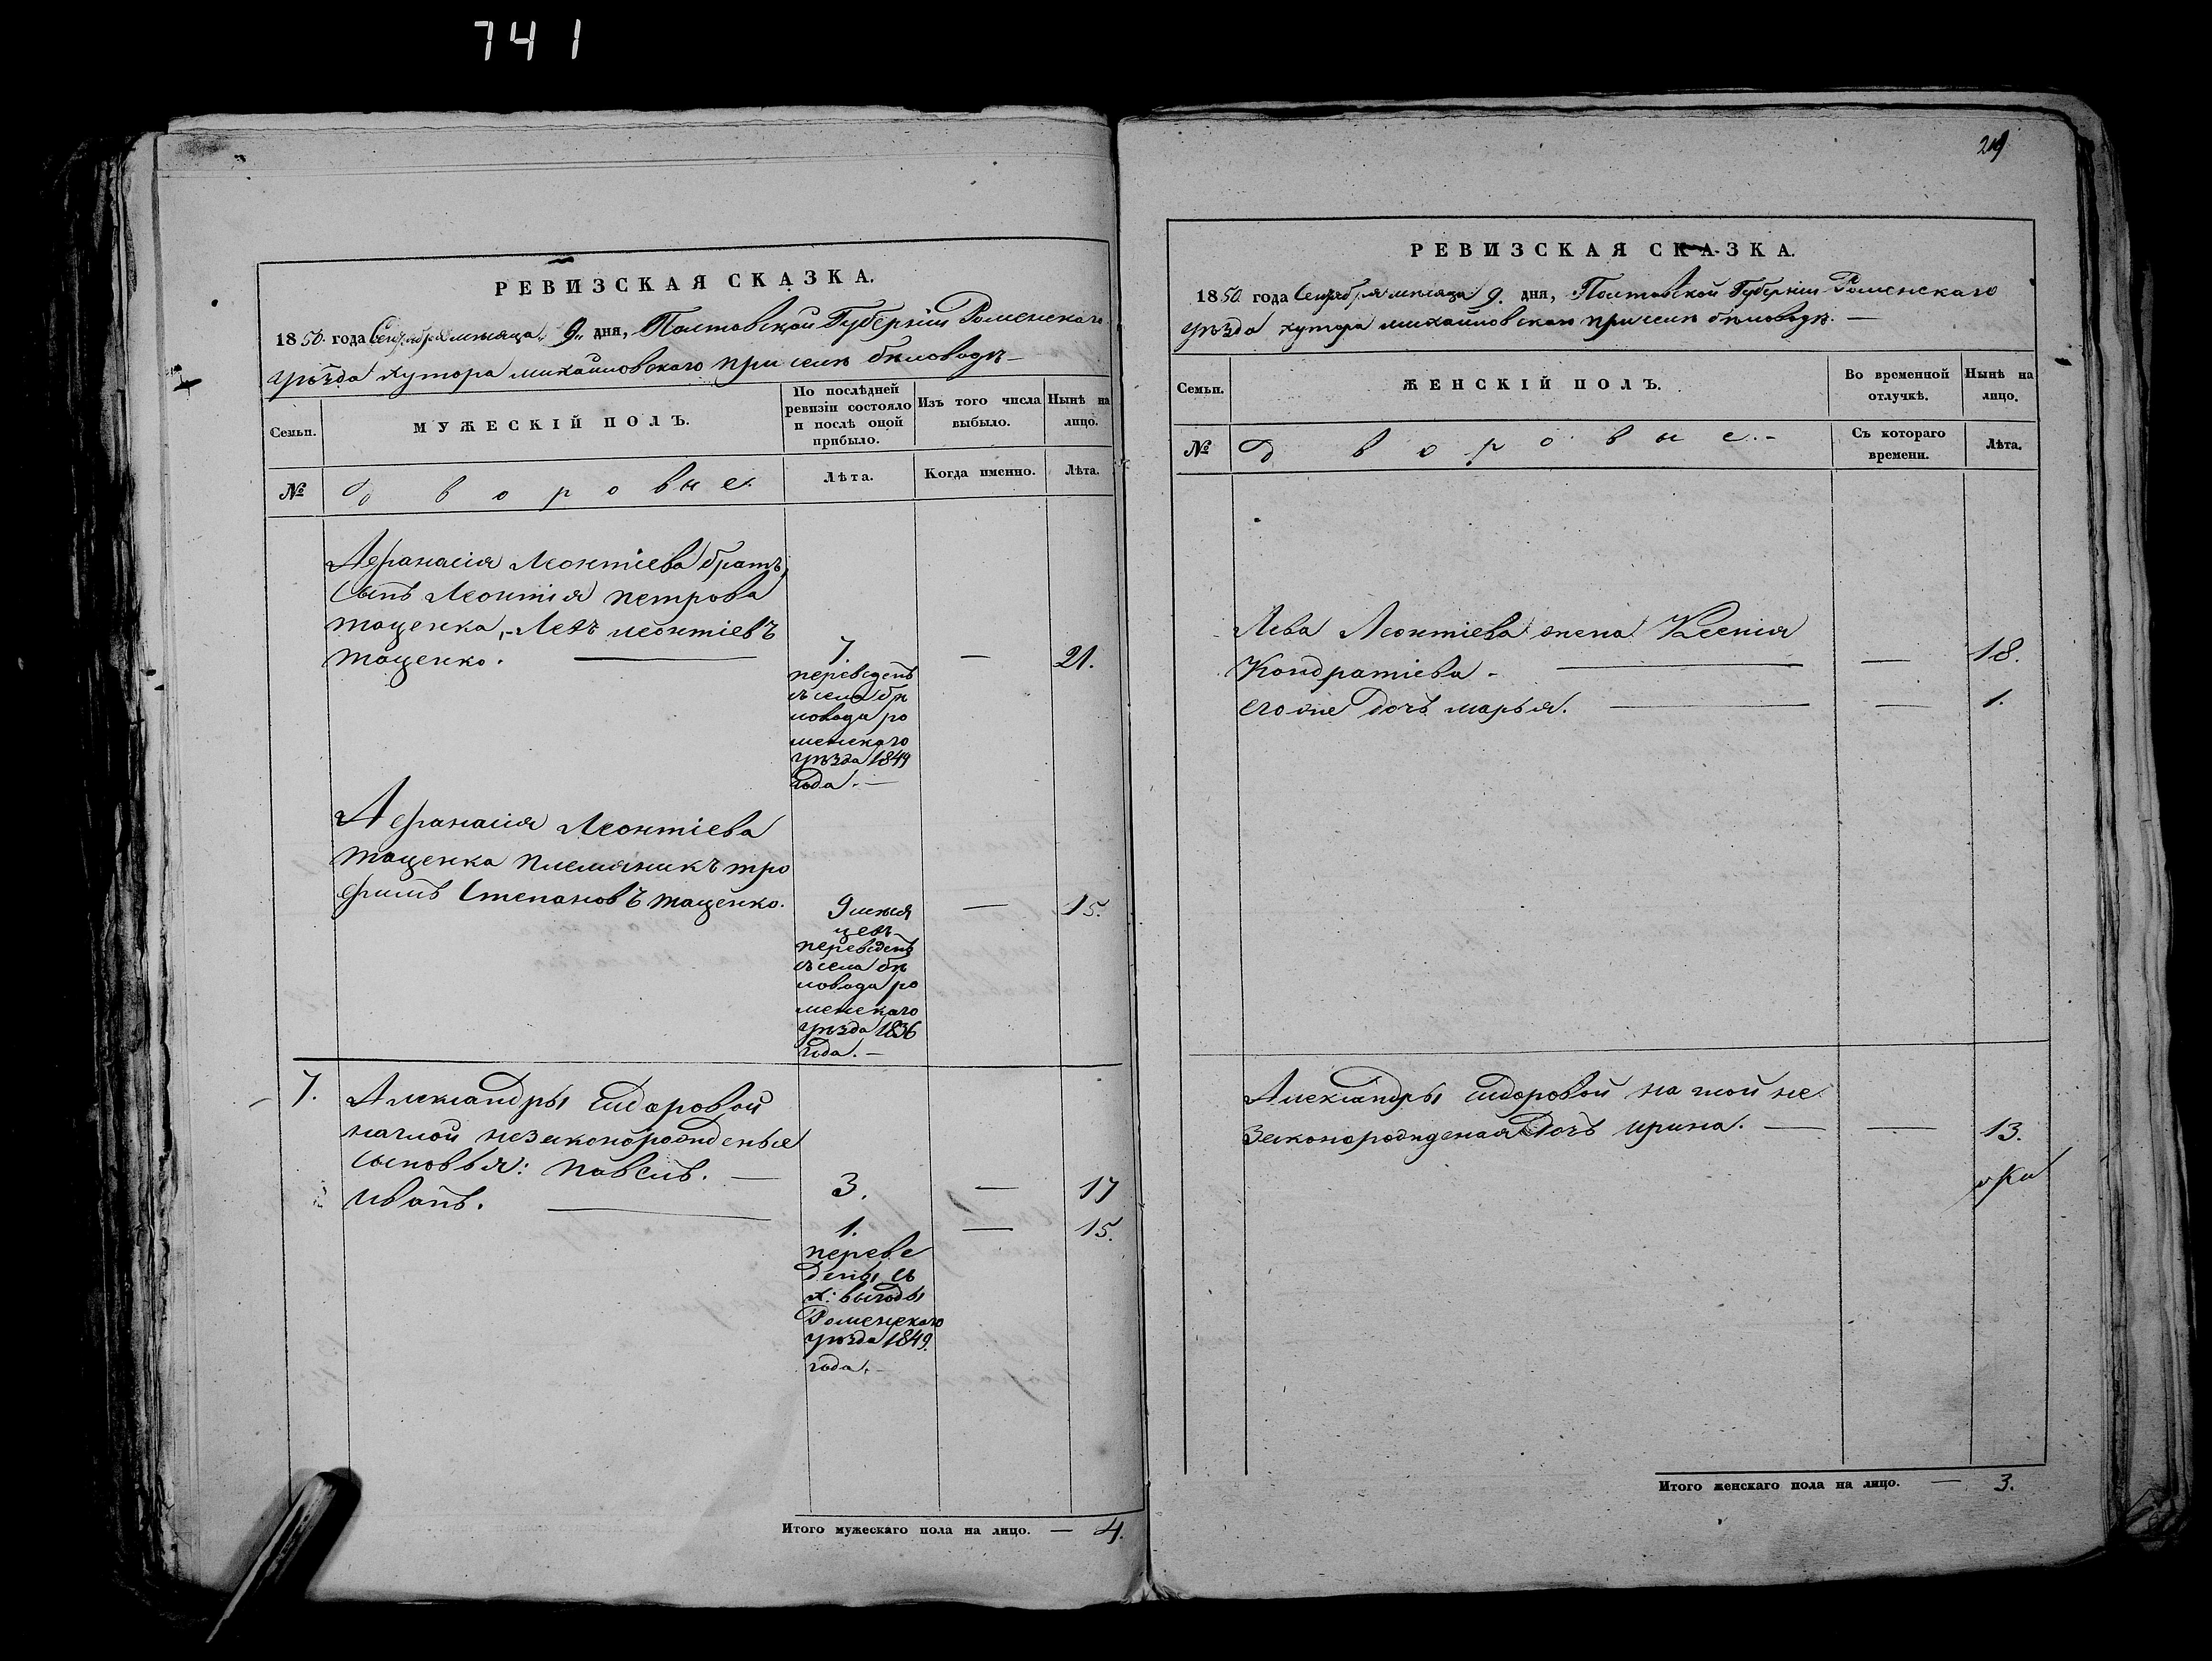 741
РЕВИЗСКАЯ СКАЗКА.
1850. года Сентября мѣсяца „ 9 „ дня, Полтавской Губерніи Роменскаго
уѣзда хутора михайловскаго при селѣ бѣловодѣ —
Семьи.
МУЖЕСКІЙ ПОЛЪ.
По послѣдней ревизіи состояло и послѣ оной прибыло.
Изъ того числа выбыло.
Нынѣ на лицо.
№
Дворовые.
Лѣта.
Когда именно.
Лѣта.
Афанасія Леонтіева братъ,
сынъ Леонтія петрова
тащенка, - Левъ леонтіевъ
тащенко. — 7. — 21.
переведенъ
съ села бѣ
ловода ро
менскаго
уѣзда 1849
года. —
Афанасія Леонтіева
тащенка племяникъ тро
фимъ Степановъ тащенко.
9 мѣся — 15.
цевъ
переведенъ
съ села бѣ
ловода ро
менскаго
уѣзда 1836
года. —
7. Александры сидоровой
незаконорожденые
сыновья: павелъ. — 3. — 17
иванъ. — 1. — 15.
переве
дены съ
х: выгоды
Роменскаго
уѣзда 1849.
года. —
Итого мужескаго пола на лицо. — 4.
29
РЕВИЗСКАЯ СКАЗКА.
1850. года Сентября мѣсяца 9. дня, Полтавской Губерніи Роменскаго
уѣзда хутора михайловскаго при селѣ бѣловодѣ. —
Семьи.
ЖЕНСКІЙ ПОЛЪ.
Во временной отлучкѣ.
Нынѣ на лицо.
№
Дворовые. -
Съ котораго времени.
Лѣта.
Лева Леонтіева жена Ксенія
Кондратіева - — — 18.
его же дочь марья. — — 1.
Александры сидоровой не
законорожденая дочь ирина. — — 13.
Итого женскаго пола на лицо. — 3.